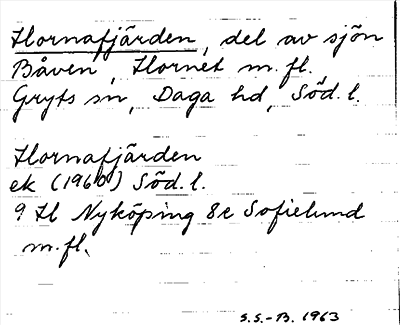 Hornafjärden, del av sjön
Båven, Hornet m.fl.
Gryts sn, Daga hd, Söd. l.
Hornafjärden
ek (1960) Söd. l.
9 H Nyköping 8c Sofielund
m.fl.
S.S.-B. 1963